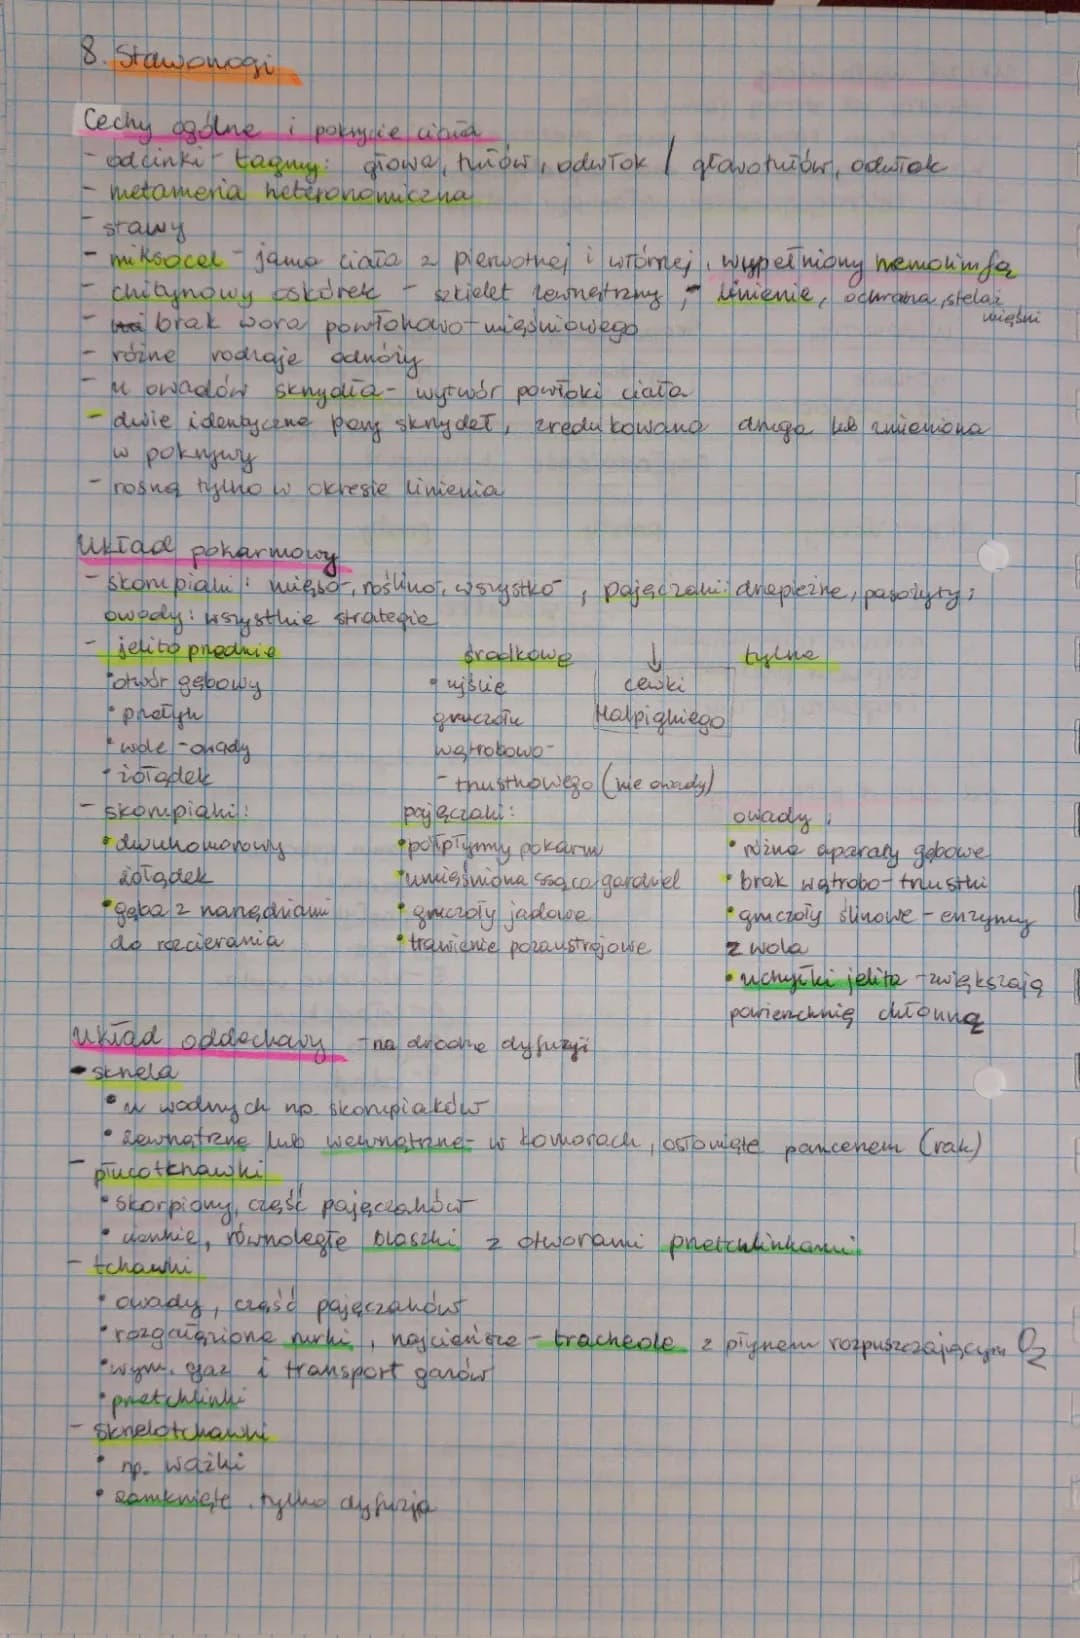 8. Stawonogi
Cechy ogólne i pokrycie ciała
- odcinki - tagmy: głowa, tułów, odwłok / głowotułów, odwłok
- metameria heteronomiczna
- stawy
- miksocel - jama ciała z pierwotnej i wtórnej, wypełniony hemolimfą
- chitynowy oskórek - szkielet zewnętrzny, - linienie, ochrona, stelaż
mięśni
- brak wora powłokowo-mięśniowego
- różne rodzaje odnóży
- u owadów skrzydła - wytwór powłoki ciała
- dwie identyczne pary skrzydeł, zredukowana druga lub zmieniona
w pokrywy
- rosną tylko w okresie linienia
Układ pokarmowy
- skorupiaki: mięso-, roślino-, wszystko-, pajęczaki: drapieżne, pasożyty;
owady: wszystkie strategie
- jelito przednie środkowe ↓ tylne
• otwór gębowy • ujście cewki
• przełyk gruczołu Malpighiego
• wole - owady wątrobowo-
• żołądek - trzustkowego (nie owady)
- skorupiaki: pajęczaki: owady:
• dwukomorowy • półpłynny pokarm • różne aparaty gębowe
żołądek • umięśniona ssąca gardziel • brak wątrobo-trzustki
• gęba z narzędziami • gruczoły jadowe • gruczoły ślinowe - enzymy
do rozcierania • trawienie pozaustrojowe z wola
• uchyłki jelita - zwiększają
powierzchnię chłonną
Układ oddechowy - na drodze dyfuzji
- skrzela
• u wodnych np. skorupiaków
• zewnętrzne lub wewnętrzne - w komorach, osłonięte pancerzem (rak)
- płucotchawki
• skorpiony, część pajęczaków
• cienkie, równoległe blaszki z otworami przetchlinkami
- tchawki
• owady, część pajęczaków
• rozgałęzione rurki, najcieńsze - tracheole z płynem rozpuszczającym O₂
• wym. gaz i transport gazów
• przetchlinki
- skrzelotchawki
• np. ważki
• zamknięte, tylko dyfuzja